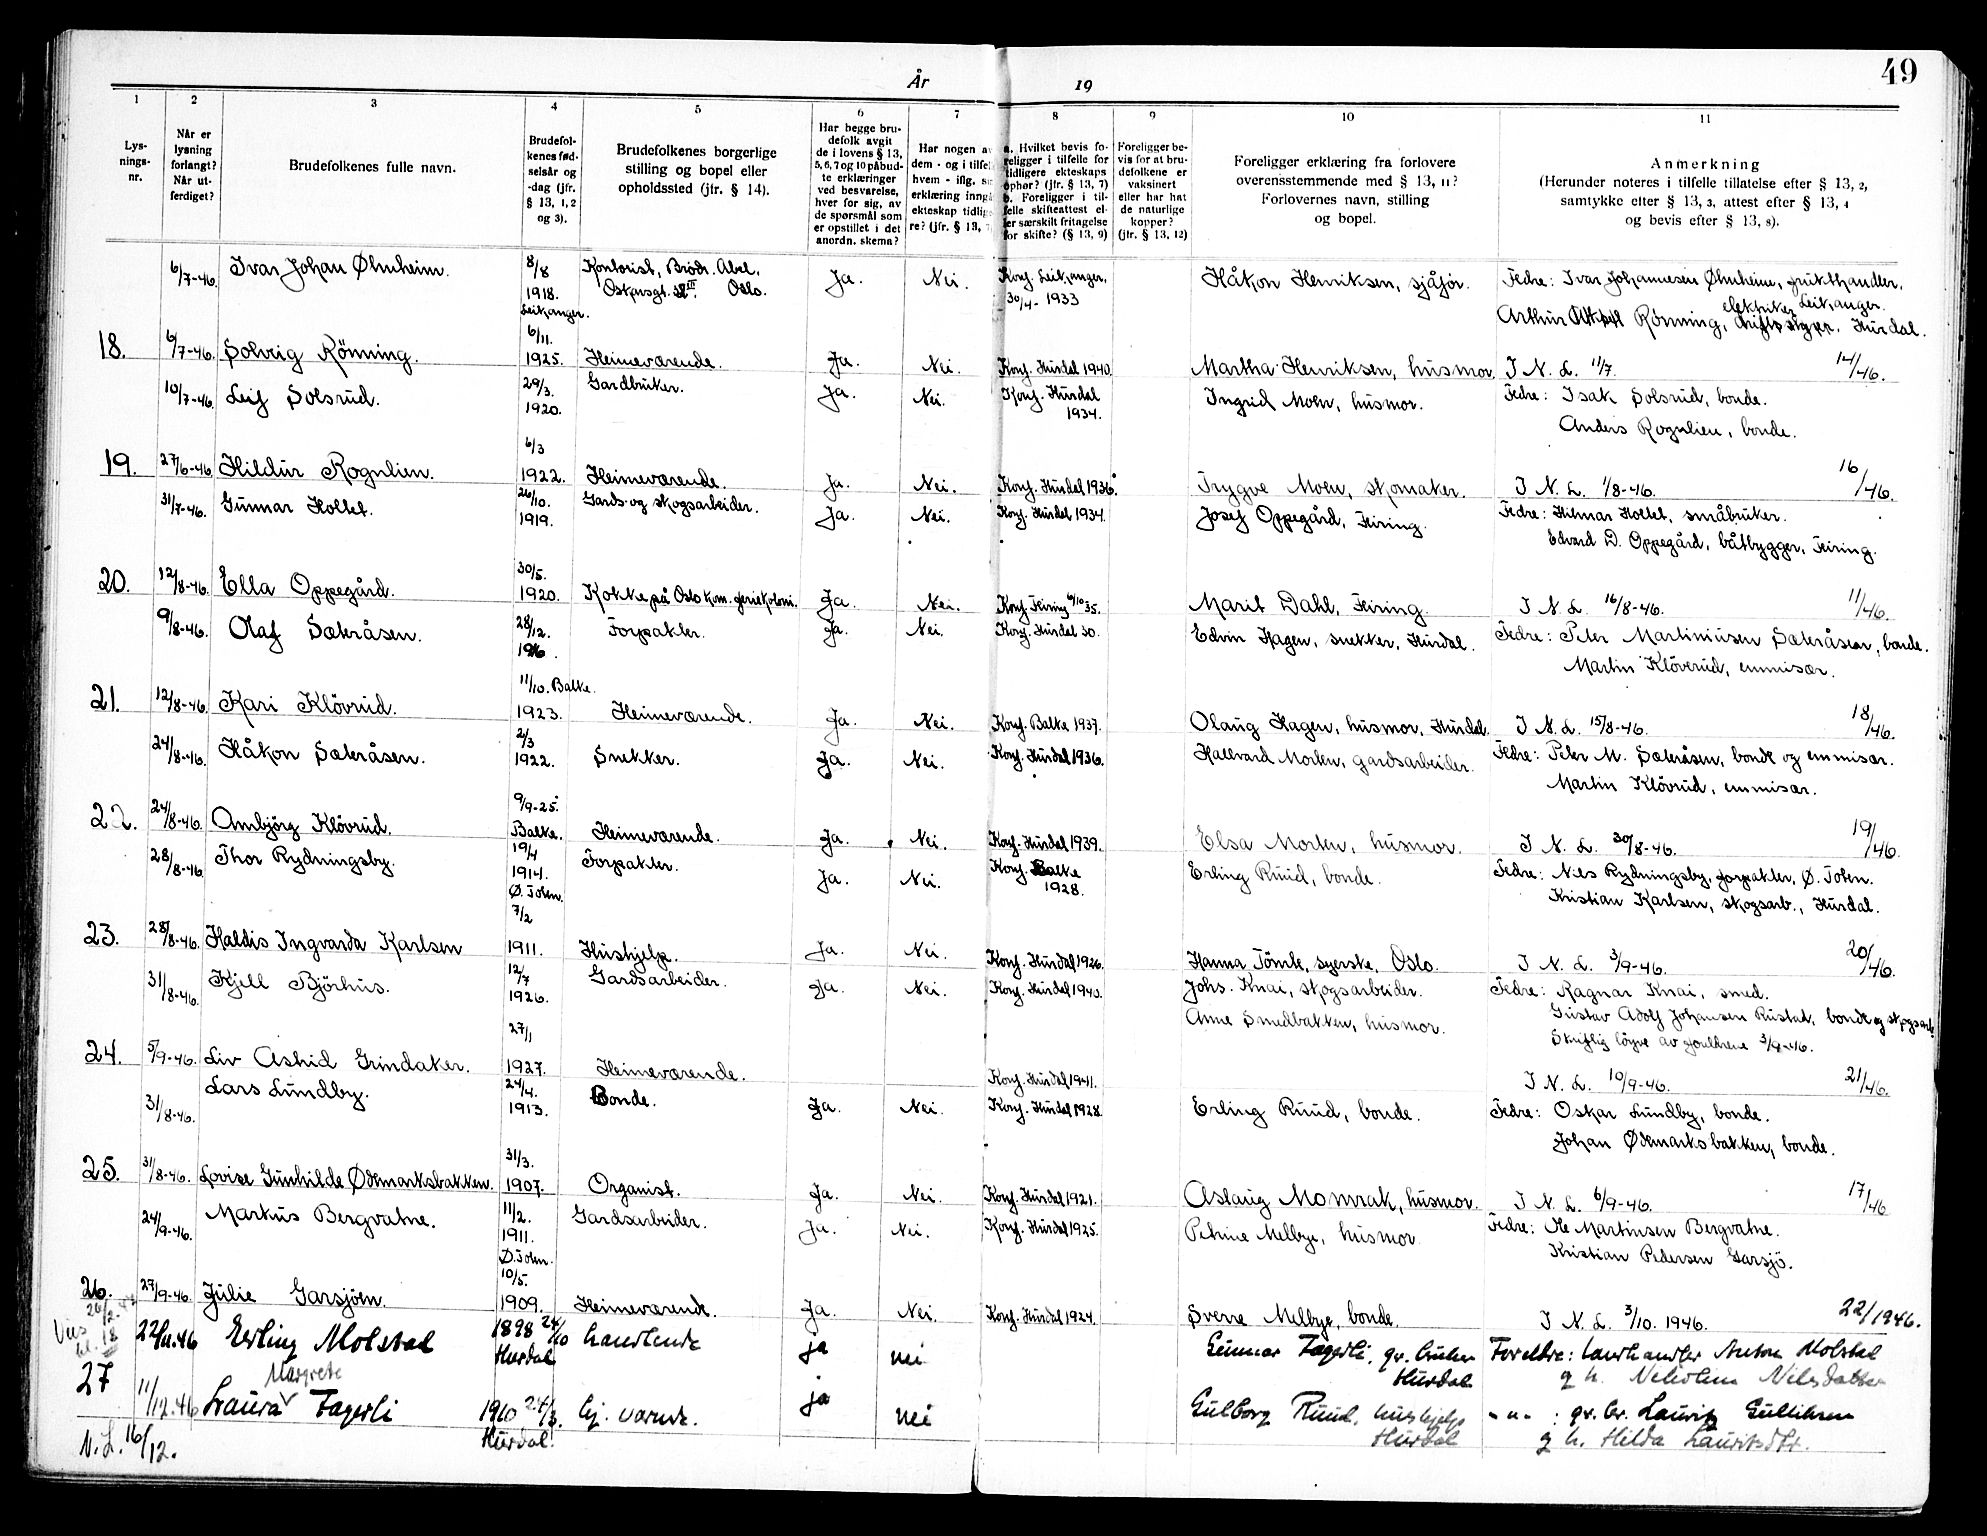 År 19
49
1 2 3 4 5 6 7 8 9 10 11
Lys-
nings-
nr.
Når er
lysning
forlangt?
Når ut-
ferdiget?
Brudefolkenes fulle navn.
Brudefol-
kenes fød-
selsår og
-dag (jfr.
§ 13, 1, 2
og 3).
Brudefolkenes borgerlige
stilling og bopel eller
opholdssted (jfr. § 14).
Har begge bru-
defolk avgit
de i lovens § 13,
5, 6, 7 og 10 påbud-
te erklæringer
ved besvarelse,
hver for sig, av
de spørsmål som
er opstillet i det
anordn. skema?
Har nogen av
dem - og i tilfel
hvem - iflg. si
erklæring inngå
ekteskap tidlig
re? (jfr. § 13,
a. Hvilket bevis fo-
religger i tilfelle for
tidligere ekteskaps
ophør? (jfr. § 13, 7)
b. Foreligger i til-
felle skifteattest el-
ler særskilt fritagelse
for skifte? (§ 13, 9)
Foreligger be-
vis for at bru-
defolkene er
vaksinert
eller har hat
de naturlige
kopper?
(jfr. § 13, 12)
Foreligger erklæring fra forlovere
overensstemmende med § 13, 11?
Forlovernes navn, stilling
og bopel.
Anmerkning
(Herunder noteres i tilfelle tillatelse efter § 13, 2,
samtykke efter § 13, 3, attest efter § 13, 4
og bevis efter § 13, 8).
6/7-46. Ivar Johan Ølmheim. 8/8 1918. Leikanger. Kontorist, Brødr. Abel, Oskarsgt. Oslo. Ja. Nei. Konf. Leikanger, 30/4- 1933 Håkon Henriksen, sjåfør. Fedre: Ivar Johannesen Ølmheim, frukthandler, Leikanger.
Arthur Rønning, elektriker Hurdal.
18. 6/7-46. Solvig Rönning. 6/11. 1925. Heimeværende. Ja. Nei. Konf. Hurdal 1940. Martha Henriksen, husmor. I N. L. 11/7. 14/46.
10/7-46. Leif Solsrud. 29/3. 1920. Gardbruker. Ja. Nei. Konf. Hurdal 1934. Ingrid Moen, husmor. Fedre: Isak Solsrud, bonde.
Anders Rognlien, bonde.
19. 27/6-46. Hildur Rognlien. 6/3 1922. Heimeværende. Ja. Nei. Konf. Hurdal 1936. Trygve Moen, skomaker. I N. L. 1/8-46. 16/46.
31/7-46. Gunnar Holtet. 26/10. 1919. Gards- og skogsarbeider. Ja. Nei. Konf. Hurdal 1934. Josef Oppegård, Feiring. Fedre: Hilmar Holtet, småbruker.
Edvard D. Oppegård, båtbygger, Feiring.
20. 12/8-46. Ella Oppegård. 30/5. 1920. Kokke på Oslo kom. feriekoloni. Ja. Nei. Konf. Feiring 6/10 35. Marit Dahl, Feiring. I N. L. 16/8-46. 11/46.
9/8-46. Olaf Sæteråsen. 28/12. 1916. Forpakter. Ja. Nei. Konf. Hurdal 30. Edvin Hagen, snekker, Hurdal. Fedre: Peter Martiniusen Sæteråsen, bonde.
Martin Klöverud, emmisær.
21. 12/8-46. Kari Klövrud. 11/10. Balke. 1923. Heimeværende. Ja. Nei. Konf. Balke 1937. Olaug Hagen, husmor, Hurdal. I N. L. 15/8-46. 18/46.
24/8-46. Håkon Sæteråsen. 2/3 1922. Snekker. Ja. Nei. Konf. Hurdal 1936. Hallvard Morten, gardsarbeider. Fedre: Peter M. Sæteråsen, bonde og emmisær.
Martin Klövrud, emmisær.
22. 24/8-46. Ambjörg Klövrud. 9/9-25. Balke. Heimeværende. Ja. Nei. Konf. Hurdal 1939. Elsa Morten, husmor. I N. L. 30/8-46. 19/46.
28/8-46. Thor Rydningsby. 19/4 1914. Ø. Toten. Forpakter. Ja. Nei. Konf. Balke 1928. Erling Ruud, bonde. Fedre: Nils Rydningsby, forpakter, Ø. Toten.
Kristian Karlsen, skogsarb., Hurdal.
23. 28/8-46. Haldis Ingvarda Karlsen 7/2 1911. Hushjelp. Ja. Nei. Konf. Hurdal 1926. Hanna Tömte, syerske, Oslo. I N. L. 3/9-46. 20/46.
31/8-46. Kjell Björhus. 12/7 1926. Gardsarbeider. Ja. Nei. Konf. Hurdal 1940. Johs. Knai, skogsarbeider. Fedre: Ragnar Knai, smed.
Anne Smedbakken, husmor. Gustav Adolf Johansen Rustad, bonde og skogsarb.
Skriftlig löyve av foreldrene 3/9-46.
24. 5/9-46. Liv Astrid Grindaker. 27/1 1927. Heimeværende. Konf. Hurdal 1941. I N. L. 10/9-46. 21/46.
31/8-46. Lars Lundby. 24/4. 1913. Bonde. Ja. Nei. Konf. Hurdal 1928. Erling Ruud, bonde. Fedre: Oskar Lundby, bonde.
Johan Ødemarksbakken, bonde.
25. 31/8-46. Lovise Gunhilde Ødemarksbakken. 31/3. 1907. Organist. Ja. Nei. Konf. Hurdal 1921. Aslaug Momrak, husmor. I N. L. 6/9-46. 17/46
24/9-46. Markus Bergvatne. 11/2. 1911. Ø. Toten. Gardsarbeider. Ja. Nei. Konf. Hurdal 1925. Petrine Melbye, husmor. Fedre: Ole Martinsen Bergvatne.
Kristian Pedersen Garsjö.
26. 27/9-46. Julie Garsjöen. 10/5. 1909. Heimeværende. Ja. Nei. Konf. Hurdal 1924. Sverre Melbye, bonde. I N. L. 3/10. 1946. 22/1946.
22/11.46 Erling Molstad 1898 24/10 Hurdal handlende ja nei Gunnar Fagerli, gr. bruker Hurdal Foreldre: Landhandler Anton Molstad
g h. Nilsdatter
27 11/12.46 Laura Margrete Fagerli 1910 24/3. Hurdal. hj. værende. ja nei Gulborg Ruud, hushjelp Hurdal - " - : gr. br. Lauritz Gulliksen
g h. Hilda Lauritsdtr.
N. L. 16/12.